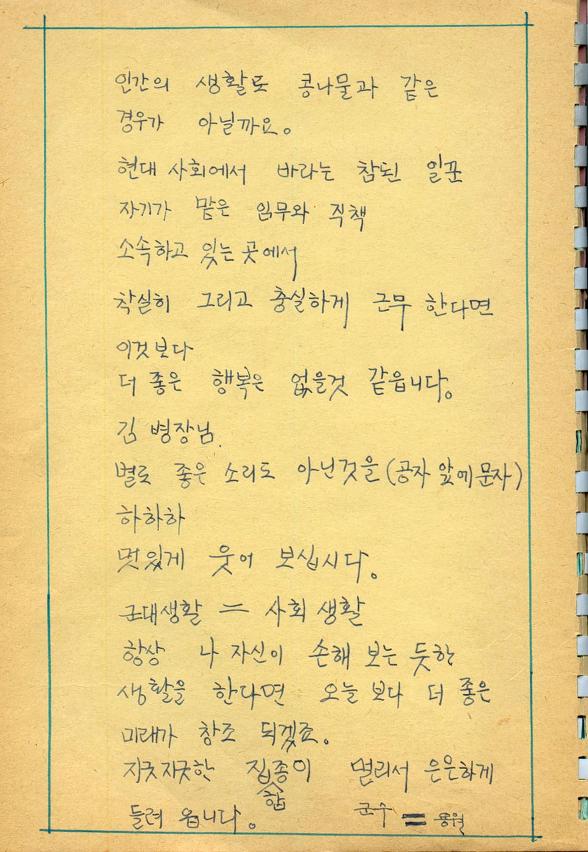 인간의 생활도 콩나물과 같은
경우가 아닐까요。
현대 사회에서 바라는 참된 일꾼
자기가 맡은 임무와 직책
소속하고 있는 곳에서
착실히 그리고 충실하게 근무 한다면
이것보다
더 좋은 행복은 없을것 같읍니다。
김 병장님.
별로 좋은 소리도 아닌것을 (공자 앞에 문자)
하하하
멋있게 웃어 보십시다。
군대생활 = 사회 생활
항상 나 자신이 손해 보는 듯한
생활을 한다면 오늘 보다 더 좋은
미래가 창조 되겠죠。
지긋지긋한 집종이 멀리서 은은하게
합
들려 옵니다。 군수 =